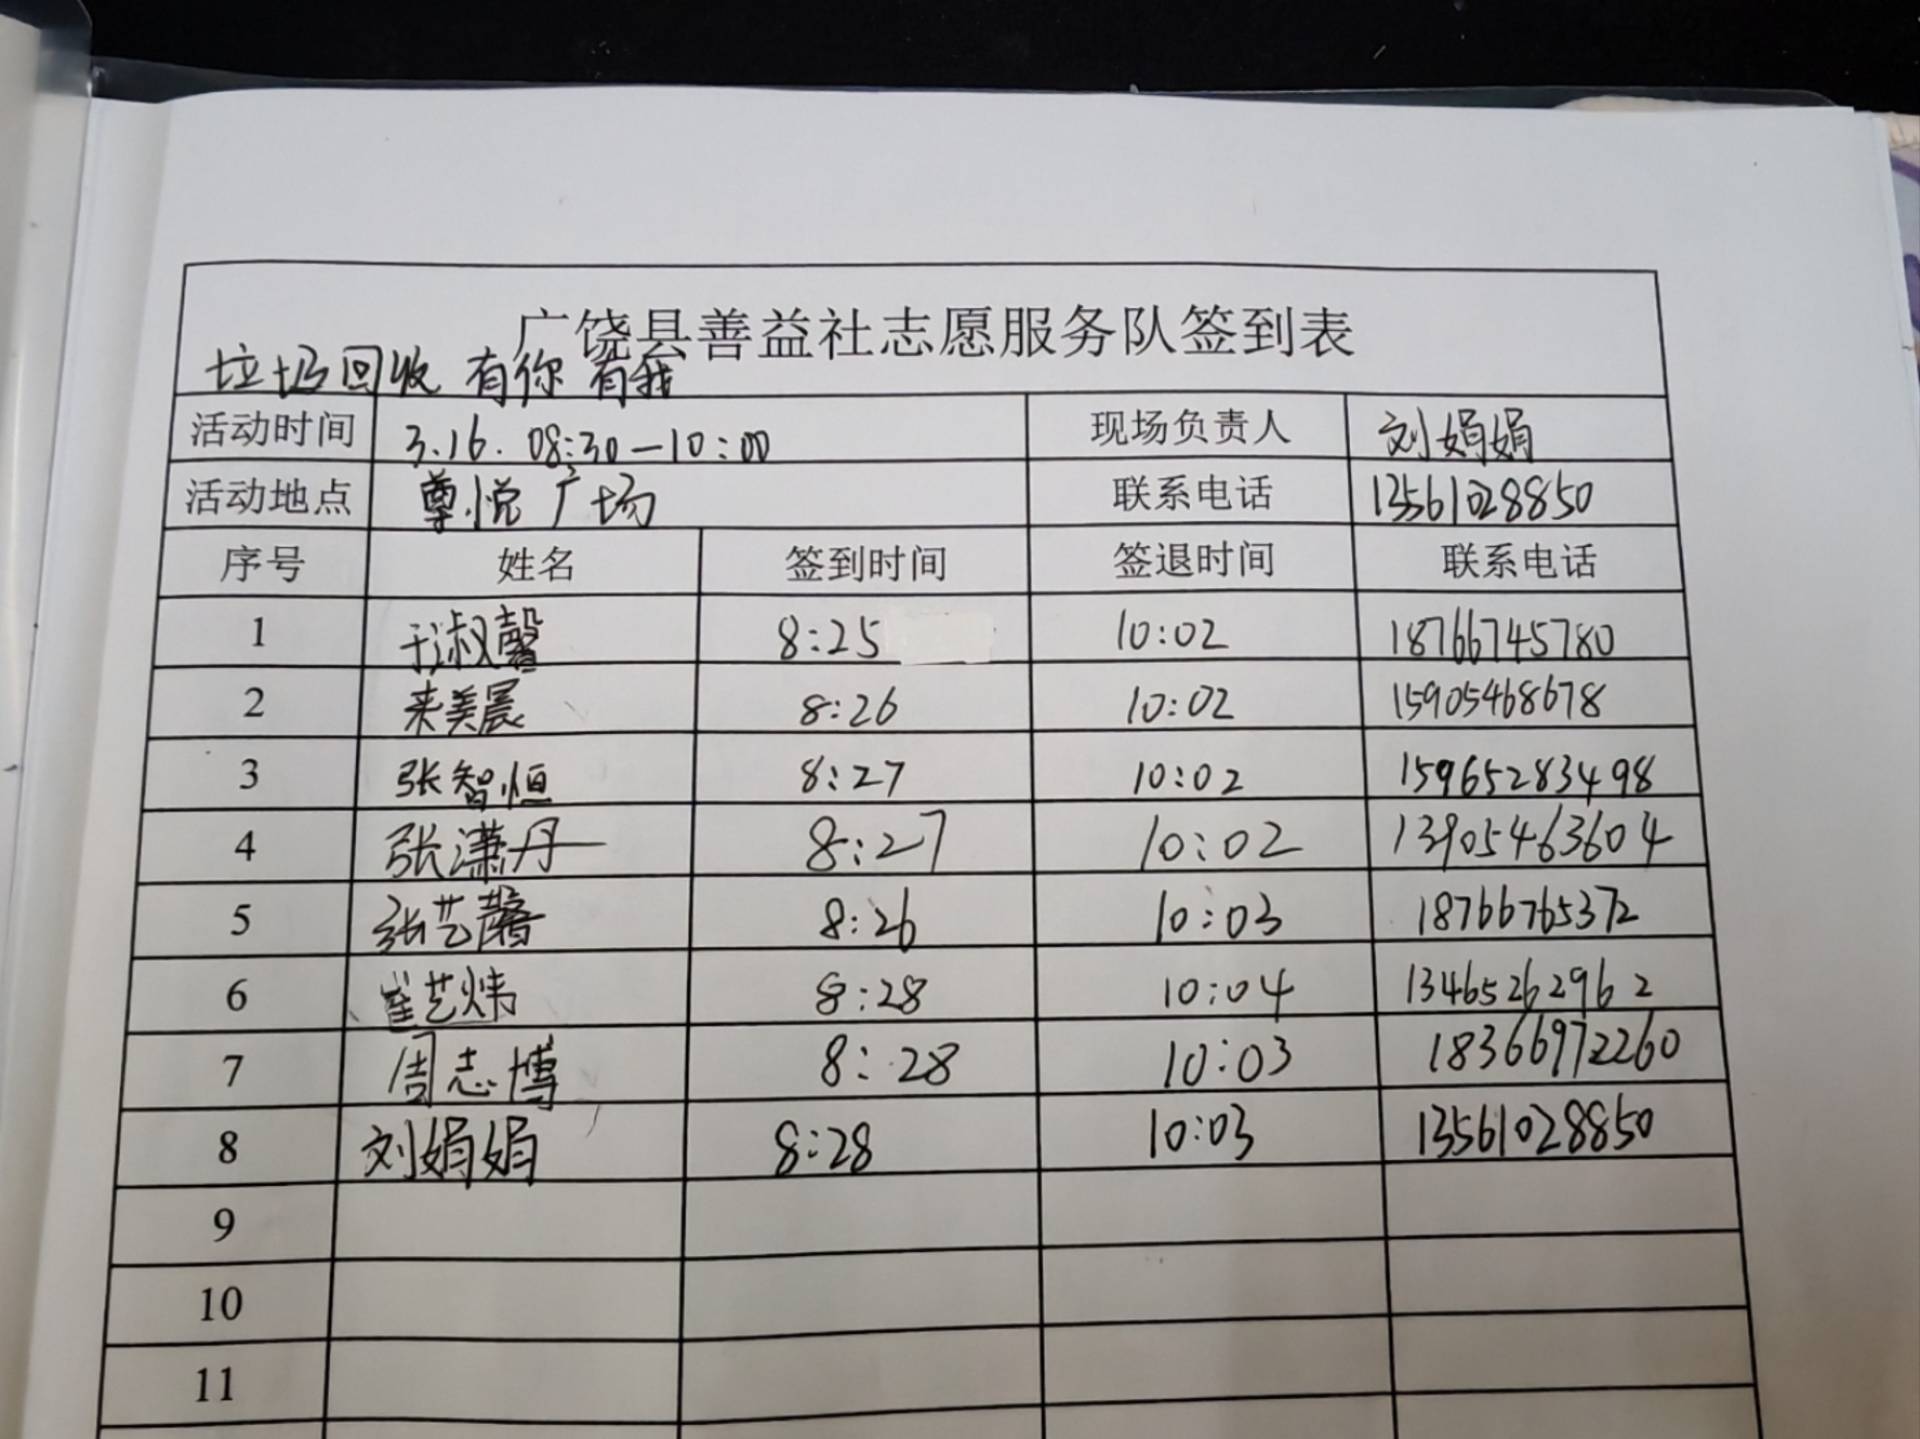 广饶县善益社志愿服务队签到表
垃圾回收 有你 有我
活动时间 3.16. 08:30—10:00 现场负责人 刘娟娟
活动地点 尊悦广场 联系电话 13561028850
序号 姓名 签到时间 签退时间 联系电话
1 于淑馨 8:25 10:02 18766745780
2 来美晨 8:26 10:02 15905468678
3 张智恒 8:27 10:02 15965283498
4 张潇丹 8:27 10:02 13905463604
5 张艺馨 8:26 10:03 18766765372
6 崔艺炜 8:28 10:04 13465262962
7 周志博 8:28 10:03 18366972260
8 刘娟娟 8:28 10:03 13561028850
9
10
11